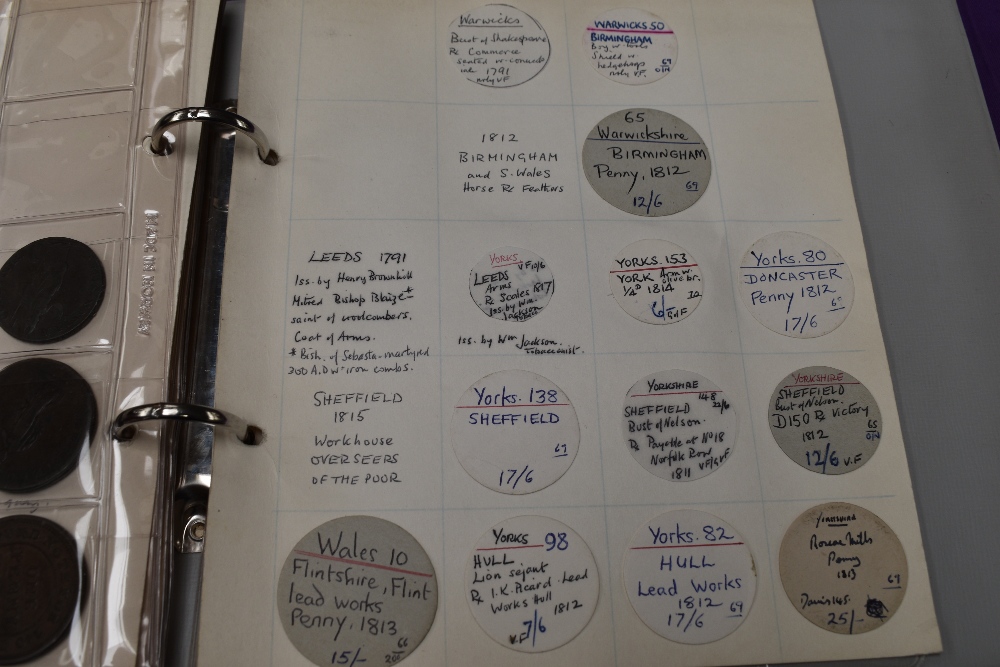 Warwicks
Bust of Shakespeare
Rx Commerce
seated w. cornuc.
1791
nrly VF
WARWICKS 50
BIRMINGHAM
Boy w. tools
Shield w
hedgehogs
nrly V.F.
69
1812
BIRMINGHAM
and S. Wales
Horse Rx Feathers
65
Warwickshire
BIRMINGHAM
Penny, 1812
69
12/6
LEEDS 1791
Iss. by Henry Brownbill
Mitred Bishop Blaize*
saint of woolcombers.
Coat of Arms.
* Bish. of Sebasta-martyred
300 A.D wt iron combs.
YORKS
VF 10/6
LEEDS
Arms
Rx Scales 1817
Iss. by Wm.
Jackson
Iss. by Wm Jackson.
tobacconist.
YORKS. 153
YORK Arm w.
olive br.
1/4D 1814
6/-
Yorks. 80
DONCASTER
Penny 1812
17/6
SHEFFIELD
1815
Workhouse
OVERSEERS
OF THE POOR
Yorks. 138
SHEFFIELD
67
17/6
YORKSHIRE
148
SHEFFIELD
22/6
Bust of Nelson.
Rx Payable at No 18
Norfolk Row
1811 VF/GVF
YORKSHIRE
SHEFFIELD
Bust of Nelson.
D150 Rx Victory
1812
65
12/6 V.F
Wales 10
Flintshire, Flint
lead works
Penny, 1813
66
15/-
YORKS 98
HULL
Lion sejant
Rx I.K. Picard. Lead
Works Hull 1812
V.F
7/6
Yorks. 82
HULL
Lead Works
1812
17/6 69
YORKSHIRE
Roscoe Mills
Penny
1813
67
Davis 145.
25/-